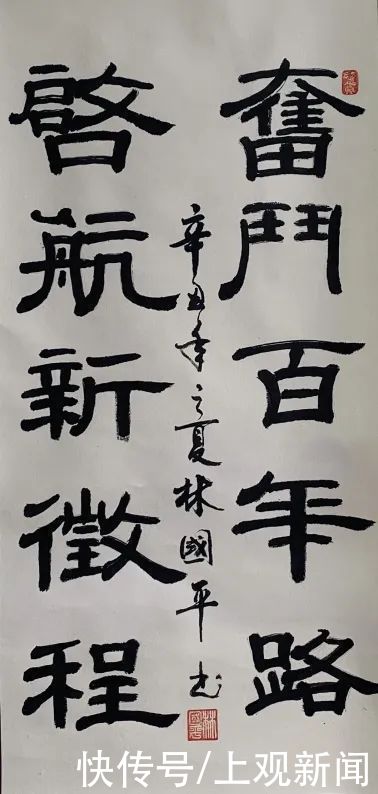 奮鬥百年路
啓航新徵程
辛丑年之夏林國平书
快传号/上观新闻